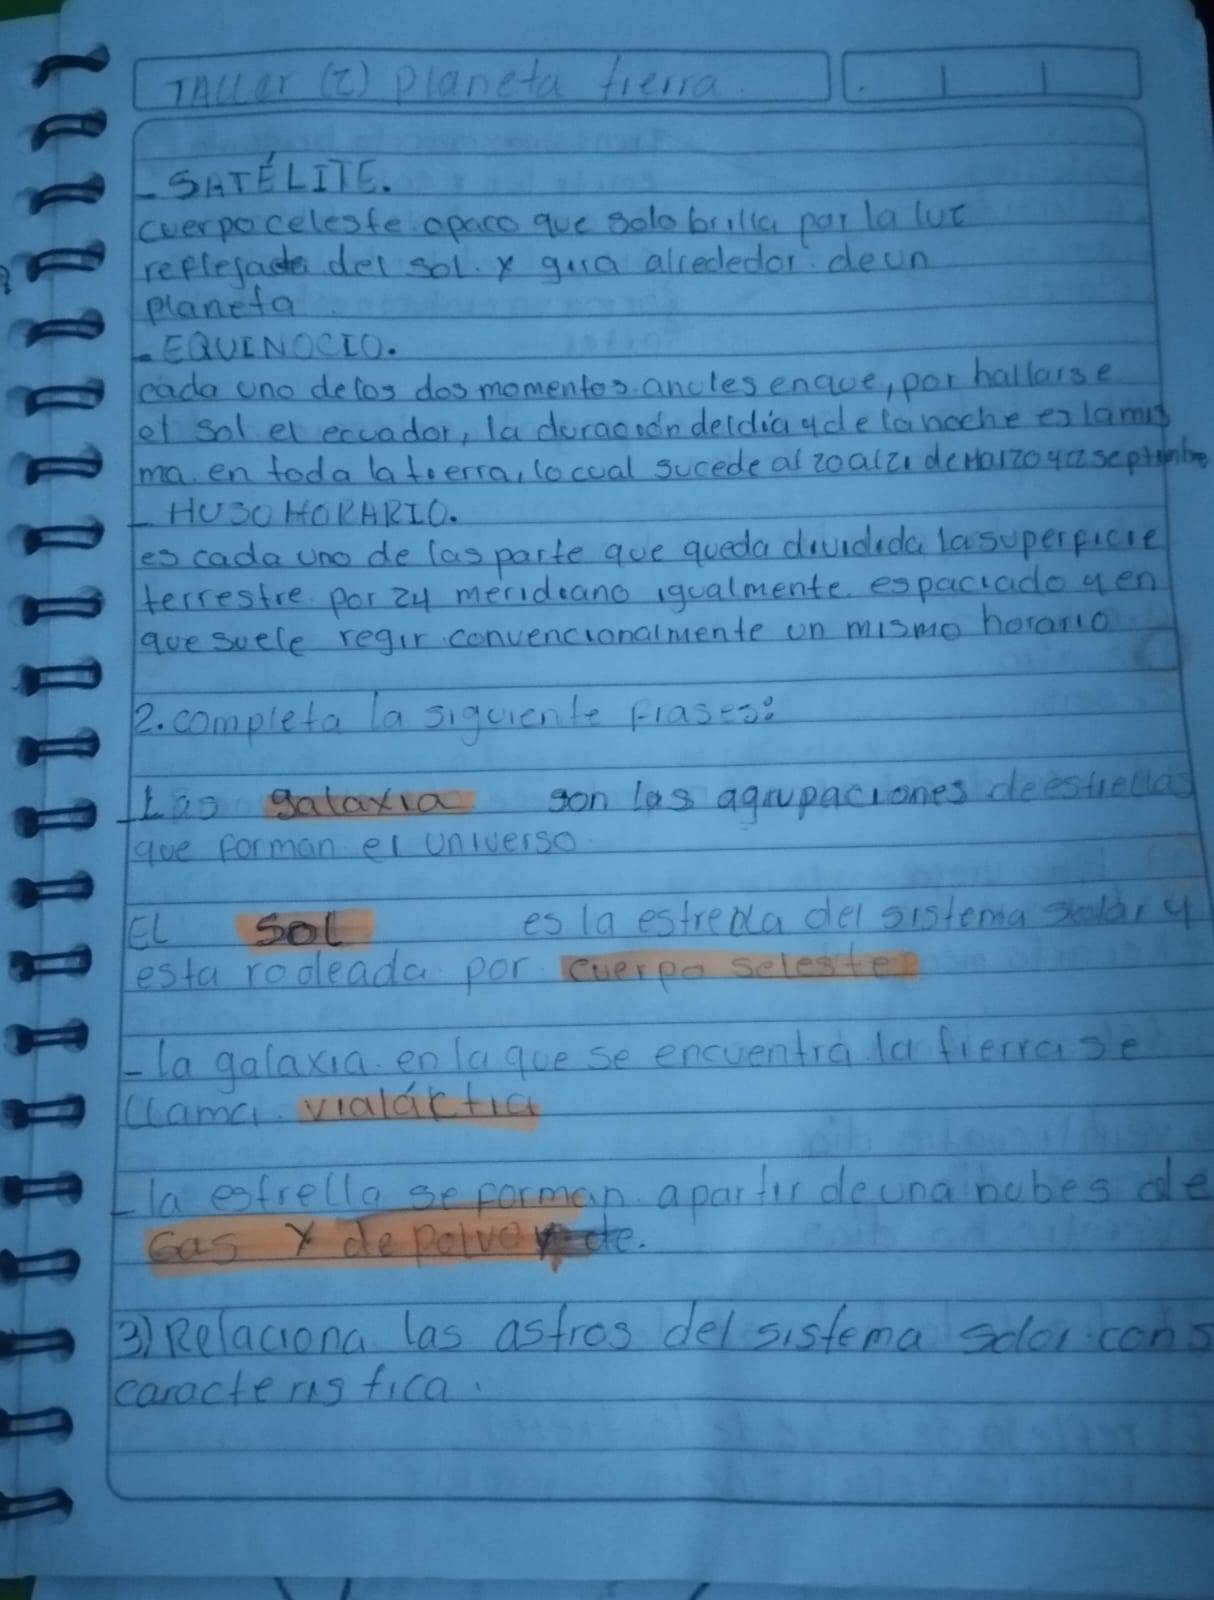 TALLER (2) planeta tierra.
- SATÉLITE.
cuerpo celeste opaco que solo brilla por la luz
reflejada del sol. y gira alrededor de un
planeta
- EQUINOCIO.
cada uno de los dos momentos anules en que, por hallarse
el sol el ecuador, la duración del día y de la noche es la mis
ma en toda la tierra, lo cual sucede al 20 al 21 de Marzo y 22 septimbe
- HUSO HORARIO.
es cada uno de las parte que queda dividida la superficie
terrestre por 24 meridiano igualmente espaciado y en
que suele regir convencionalmente un mismo horario
2. completa la siguiente frases:
Las galaxia son las agrupaciones de estrellas
que forman el universo.
EL SOL es la estrella del sistema solar y
esta rodeada por cuerpo seleste
- la galaxia en la que se encuentra la tierra se
llama vialáctia
- la estrella se forman a partir de una nubes de
Gas y de polvo
3) Relaciona las astros del sistema solar con s
caracteristica.